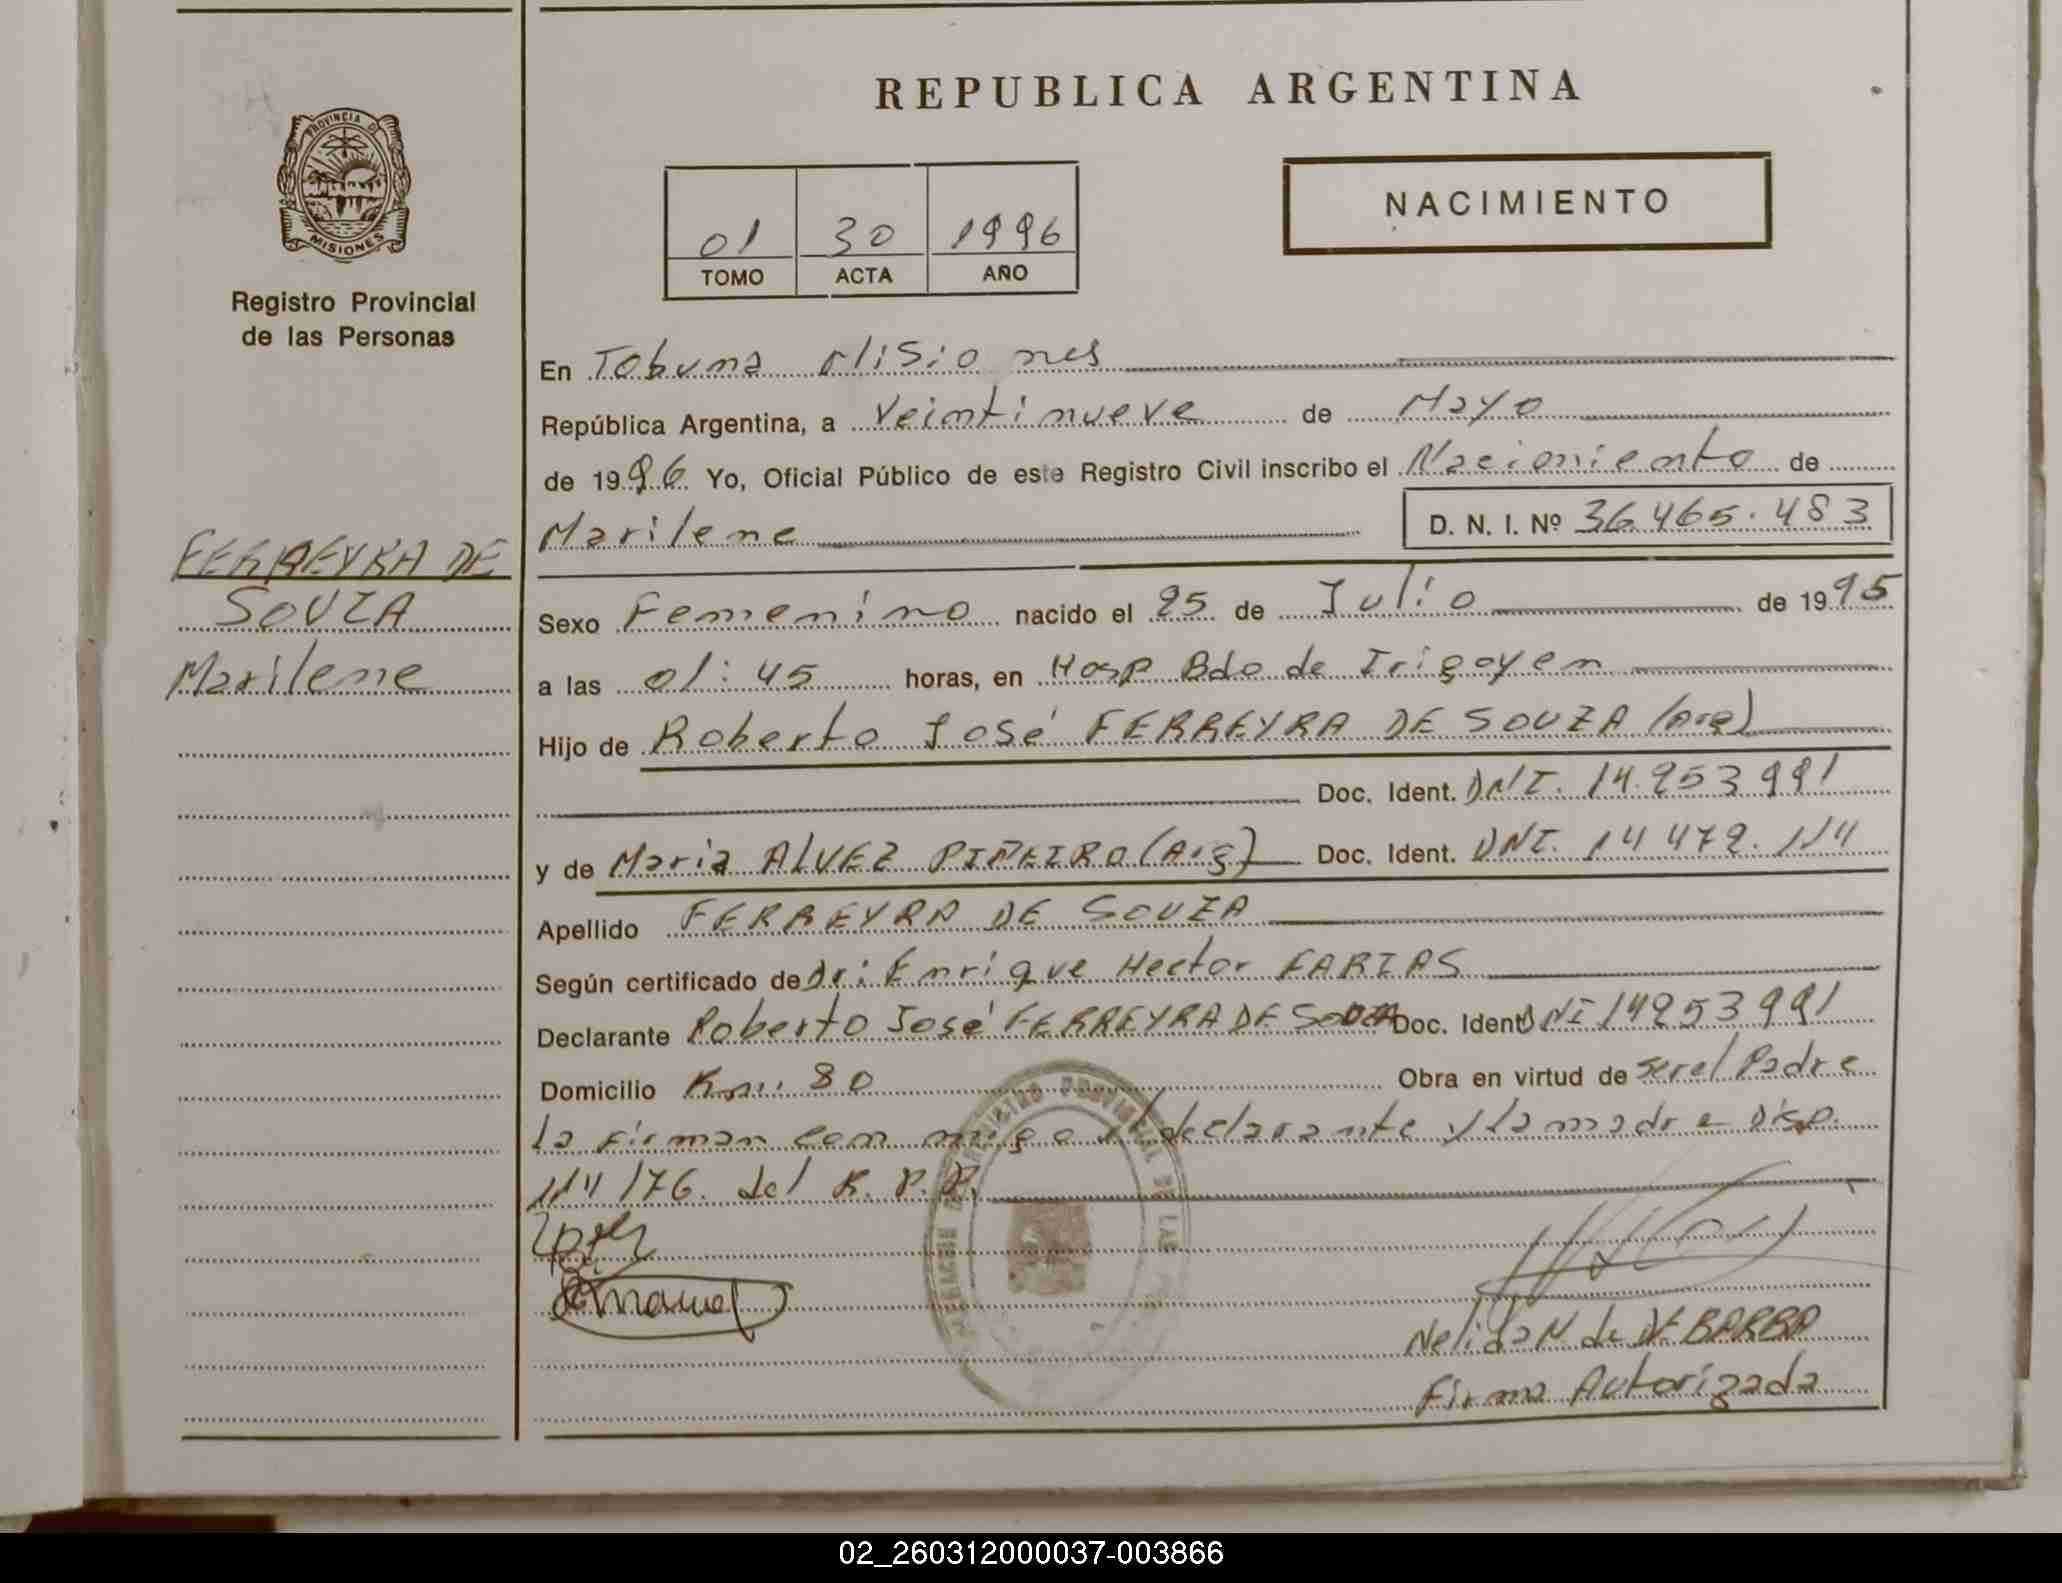 REPUBLICA ARGENTINA
PROVINCIA DE
MISIONES
Registro Provincial
de las Personas
01 30 1996
TOMO ACTA AÑO
NACIMIENTO
En Tobuna Misiones
República Argentina, a Veintinueve de Mayo
de 1996 Yo, Oficial Público de este Registro Civil inscribo el Nacimiento de
Marilene D. N. I. Nº 36.465.483
FERREYRA DE
SOUZA
Marilene
Sexo Femenino nacido el 25 de Julio de 1995
a las 01:45 horas, en Hosp Bdo de Irigoyen
Hijo de Roberto José FERREYRA DE SOUZA (Arg)
Doc. Ident. DNI. 14.253991
y de Maria ALVEZ PIÑEIRO (Arg) Doc. Ident. DNI. 14 472.114
Apellido FERREYRA DE SOUZA
Según certificado de Dr: Enrique Hector FARIAS
Declarante Roberto José FERREYRA DE SOUZA Doc. Ident DNI 14253991
Domicilio Km: 80 Obra en virtud de ser el Padre
La firman conmigo el declarante y la madre Disp.
114/76. del R. P. P.
Nelida N de DE BARBA
Firma Autorizada
02_260312000037-003866